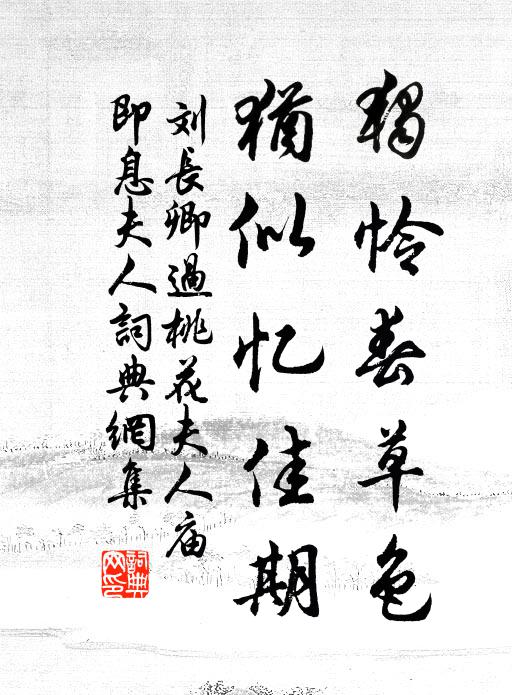 獨怜春草色
猶似忆佳期
刘長卿過桃花夫人庙
即息夫人詞典網集
詞典网印